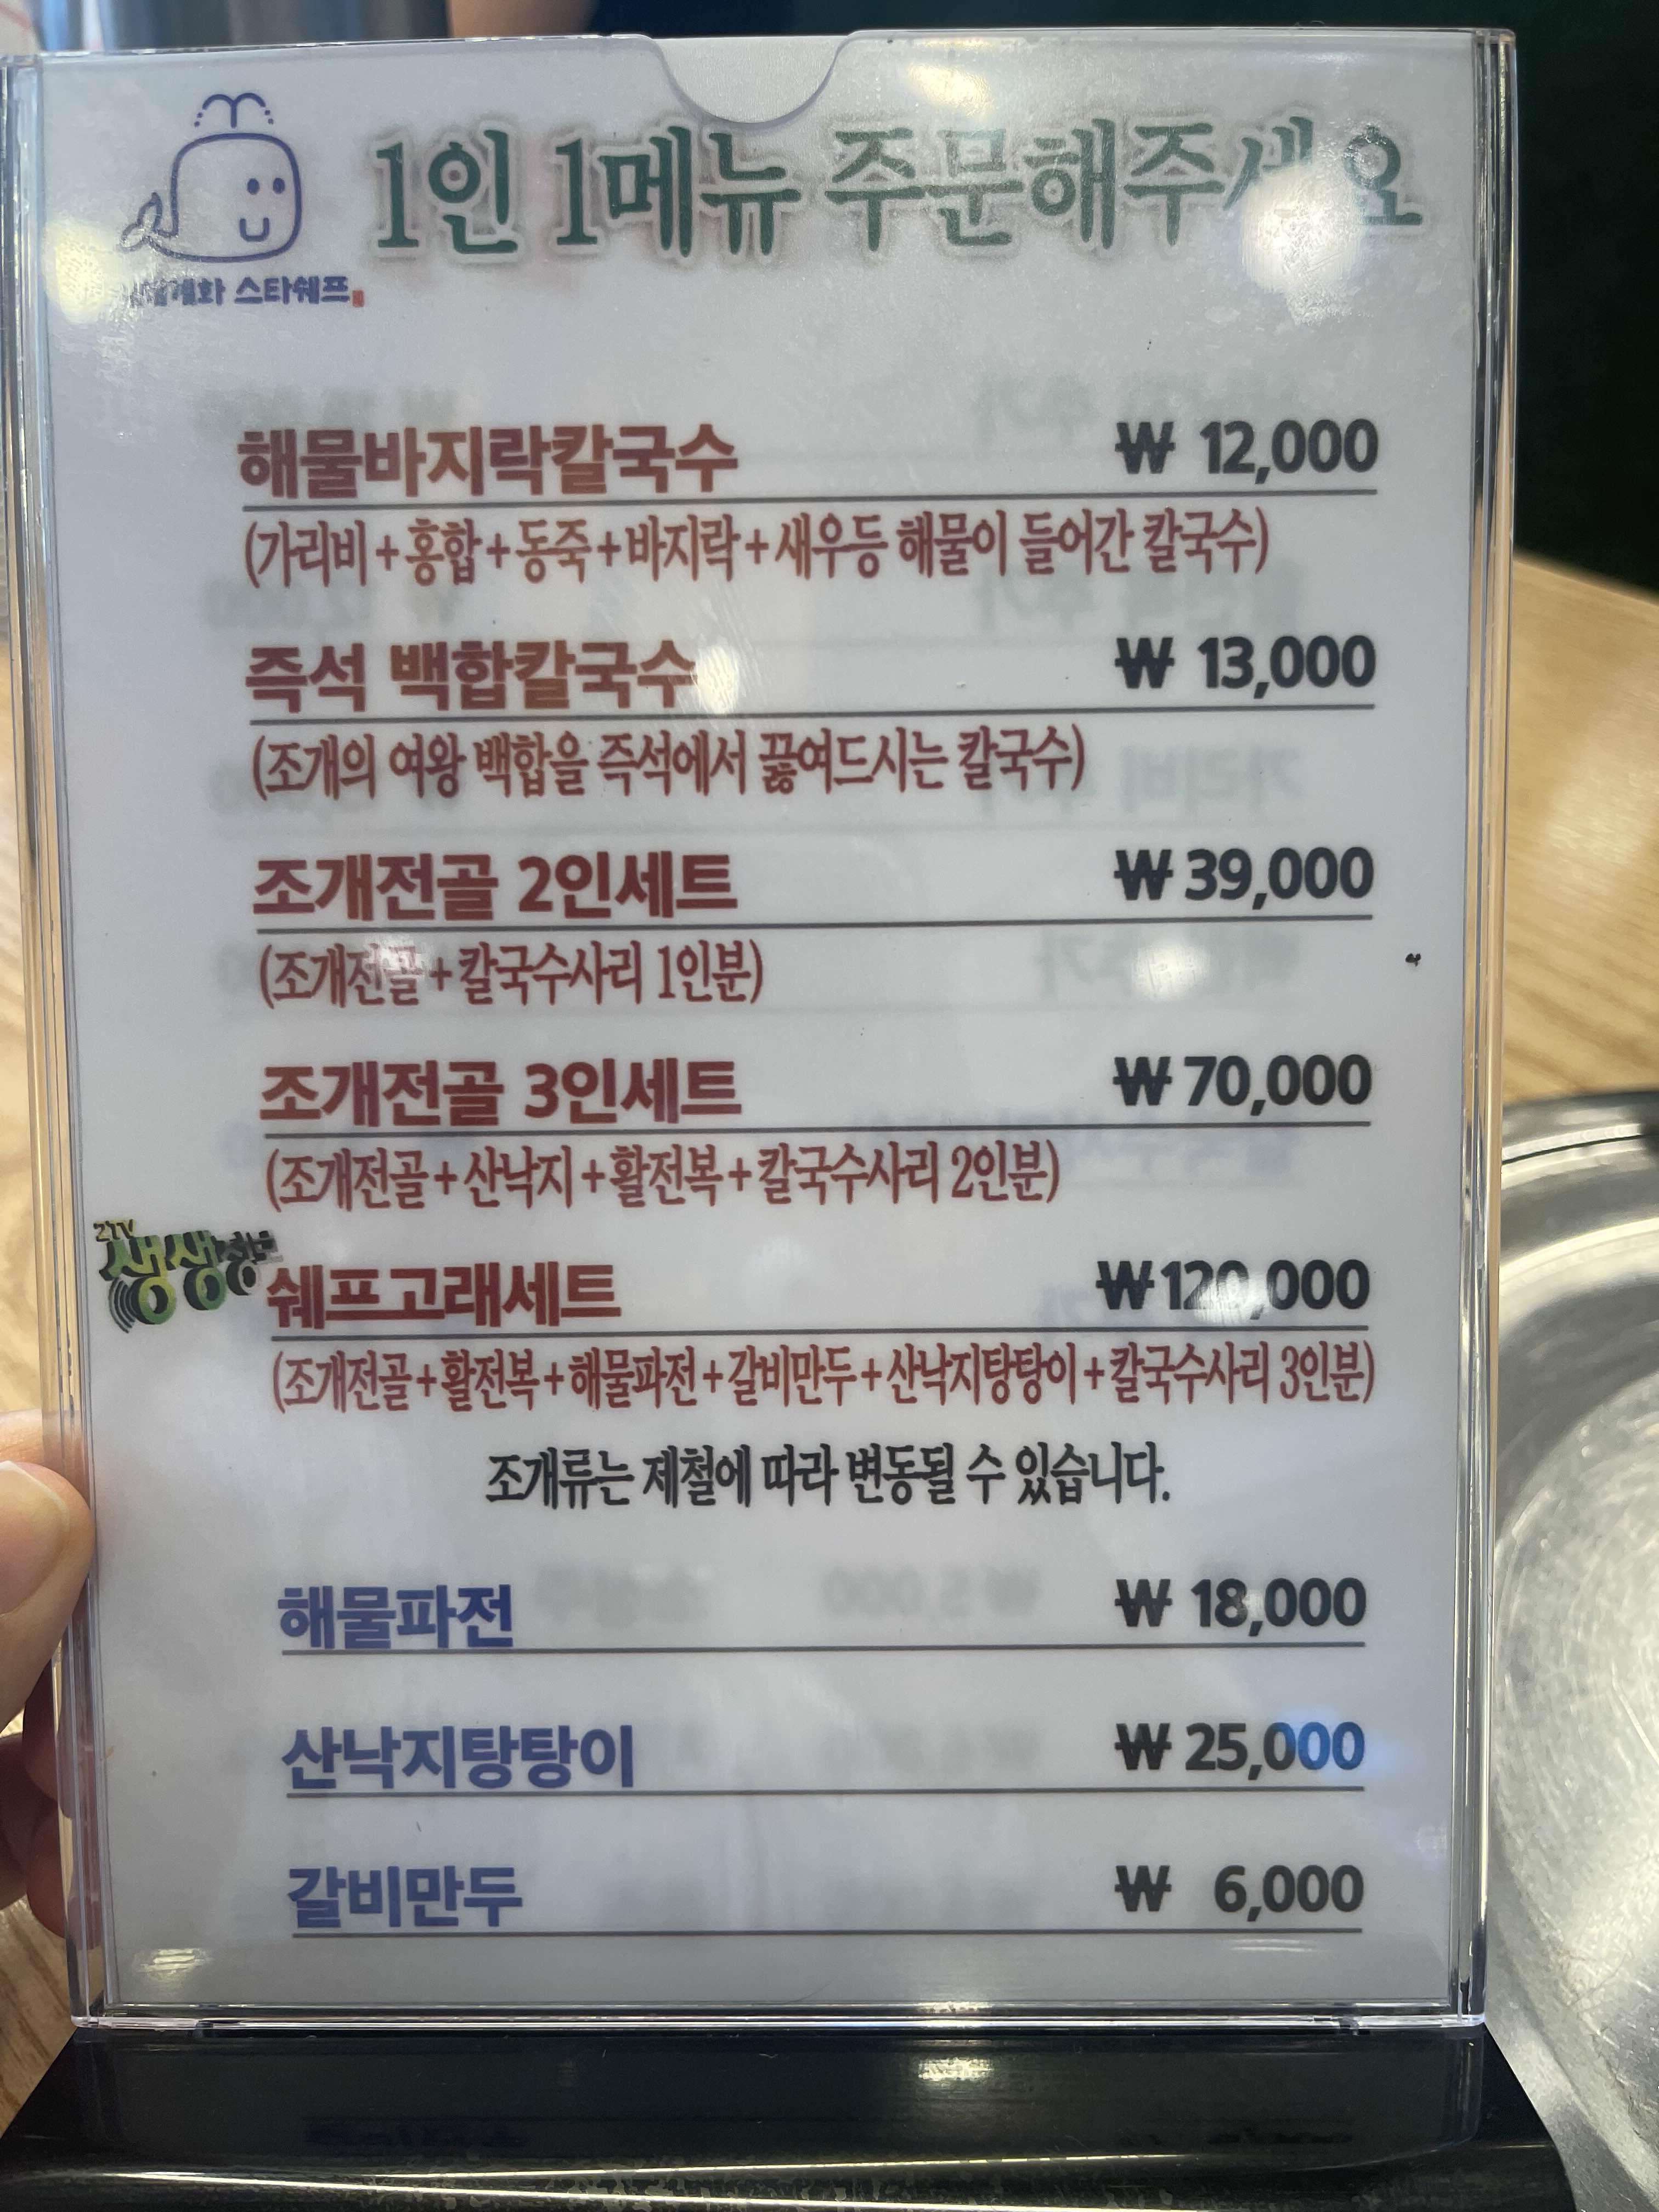 1인 1메뉴 주문해주세요
스타쉐프
해물바지락칼국수 ₩ 12,000
(가리비+홍합+동죽+바지락+새우등 해물이 들어간 칼국수)
즉석 백합칼국수 ₩ 13,000
(조개의 여왕 백합을 즉석에서 끓여드시는 칼국수)
조개전골 2인세트 ₩ 39,000
(조개전골+칼국수사리 1인분)
조개전골 3인세트 ₩ 70,000
(조개전골+산낙지+활전복+칼국수사리 2인분)
2TV
생생정보
쉐프고래세트 ₩120,000
(조개전골+활전복+해물파전+갈비만두+산낙지탕탕이+칼국수사리 3인분)
조개류는 제철에 따라 변동될 수 있습니다.
해물파전 ₩ 18,000
산낙지탕탕이 ₩ 25,000
갈비만두 ₩ 6,000